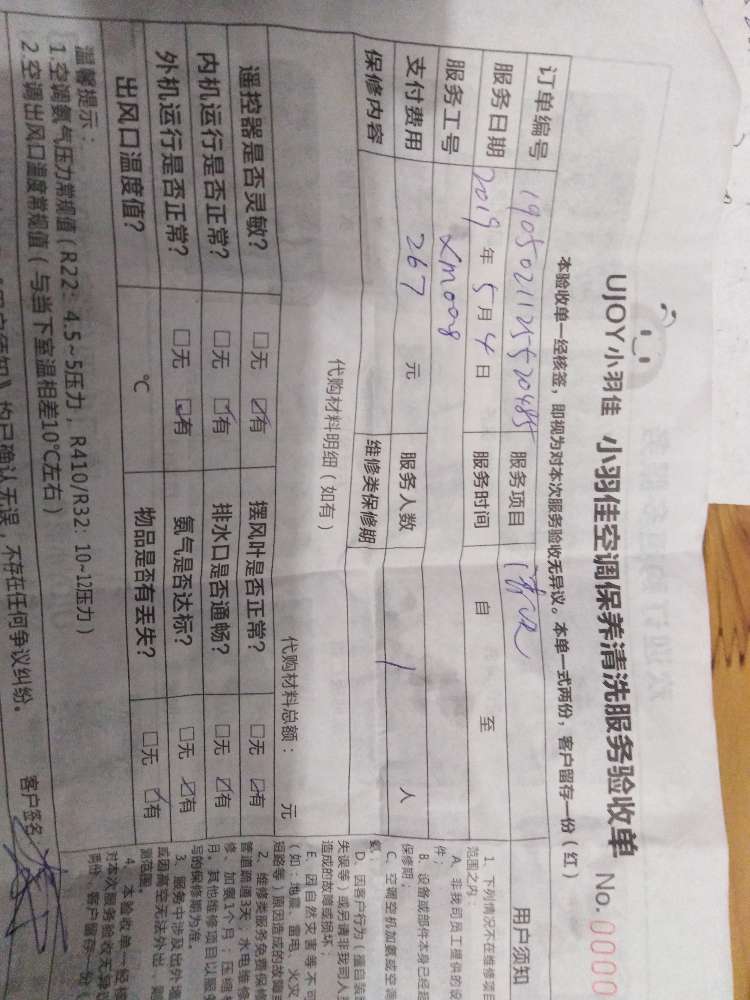 UJOY小羽佳 小羽佳空调保养清洗服务验收单 No. 0000
本验收单一经核签，即视为对本次服务验收无异议。本单一式两份，客户留存一份（红）
订单编号 1905021125520485 服务项目 清洗
服务日期 2019年5月4日 服务时间 自 至
服务工号 Xm008
支付费用 267 元 服务人数 1 人
保修内容 维修类保修期
代购材料明细（如有） 代购材料总额： 元
遥控器是否灵敏？ □无 ☑有 摆风叶是否正常？ □无 ☑有
内机运行是否正常？ □无 ☑有 排水口是否通畅？ □无 ☑有
外机运行是否正常？ □无 ☑有 氨气是否达标？ □无 ☑有
出风口温度值？ ℃ 物品是否有丢失？ □无 ☑有
温馨提示：
1.空调氨气压力常规值（R22：4.5~5压力，R410/R32：10~12压力）
2.空调出风口温度常规值（与当下室温相差10℃左右）
均已确认无误，不存在任何争议纠纷。
客户签名
用户须知
1、下列情况不在维修项目
范围之内：
A、非我司员工提供的设
件；
B、设备或部件本身已经超
保修期；
C、空调空机加氨或空调
氨；
D、因客户行为（擅自装
失误等）或另请非我司人
造成的故障或损坏；
E、因自然灾害等不可
（如：地震、雷电、火灾
短路等）原因造成的故障
2、维修类服务免费保修
管道疏通3天；水电维修
修、加氨1个月；压缩机
月。其他维修项目以服
写的保修期为准。
3、服务中涉及出外墙
或因高空无法外出，则
测范围。
4、本验收单一经核
对本次服务验收无异议
两份，客户留存一份（